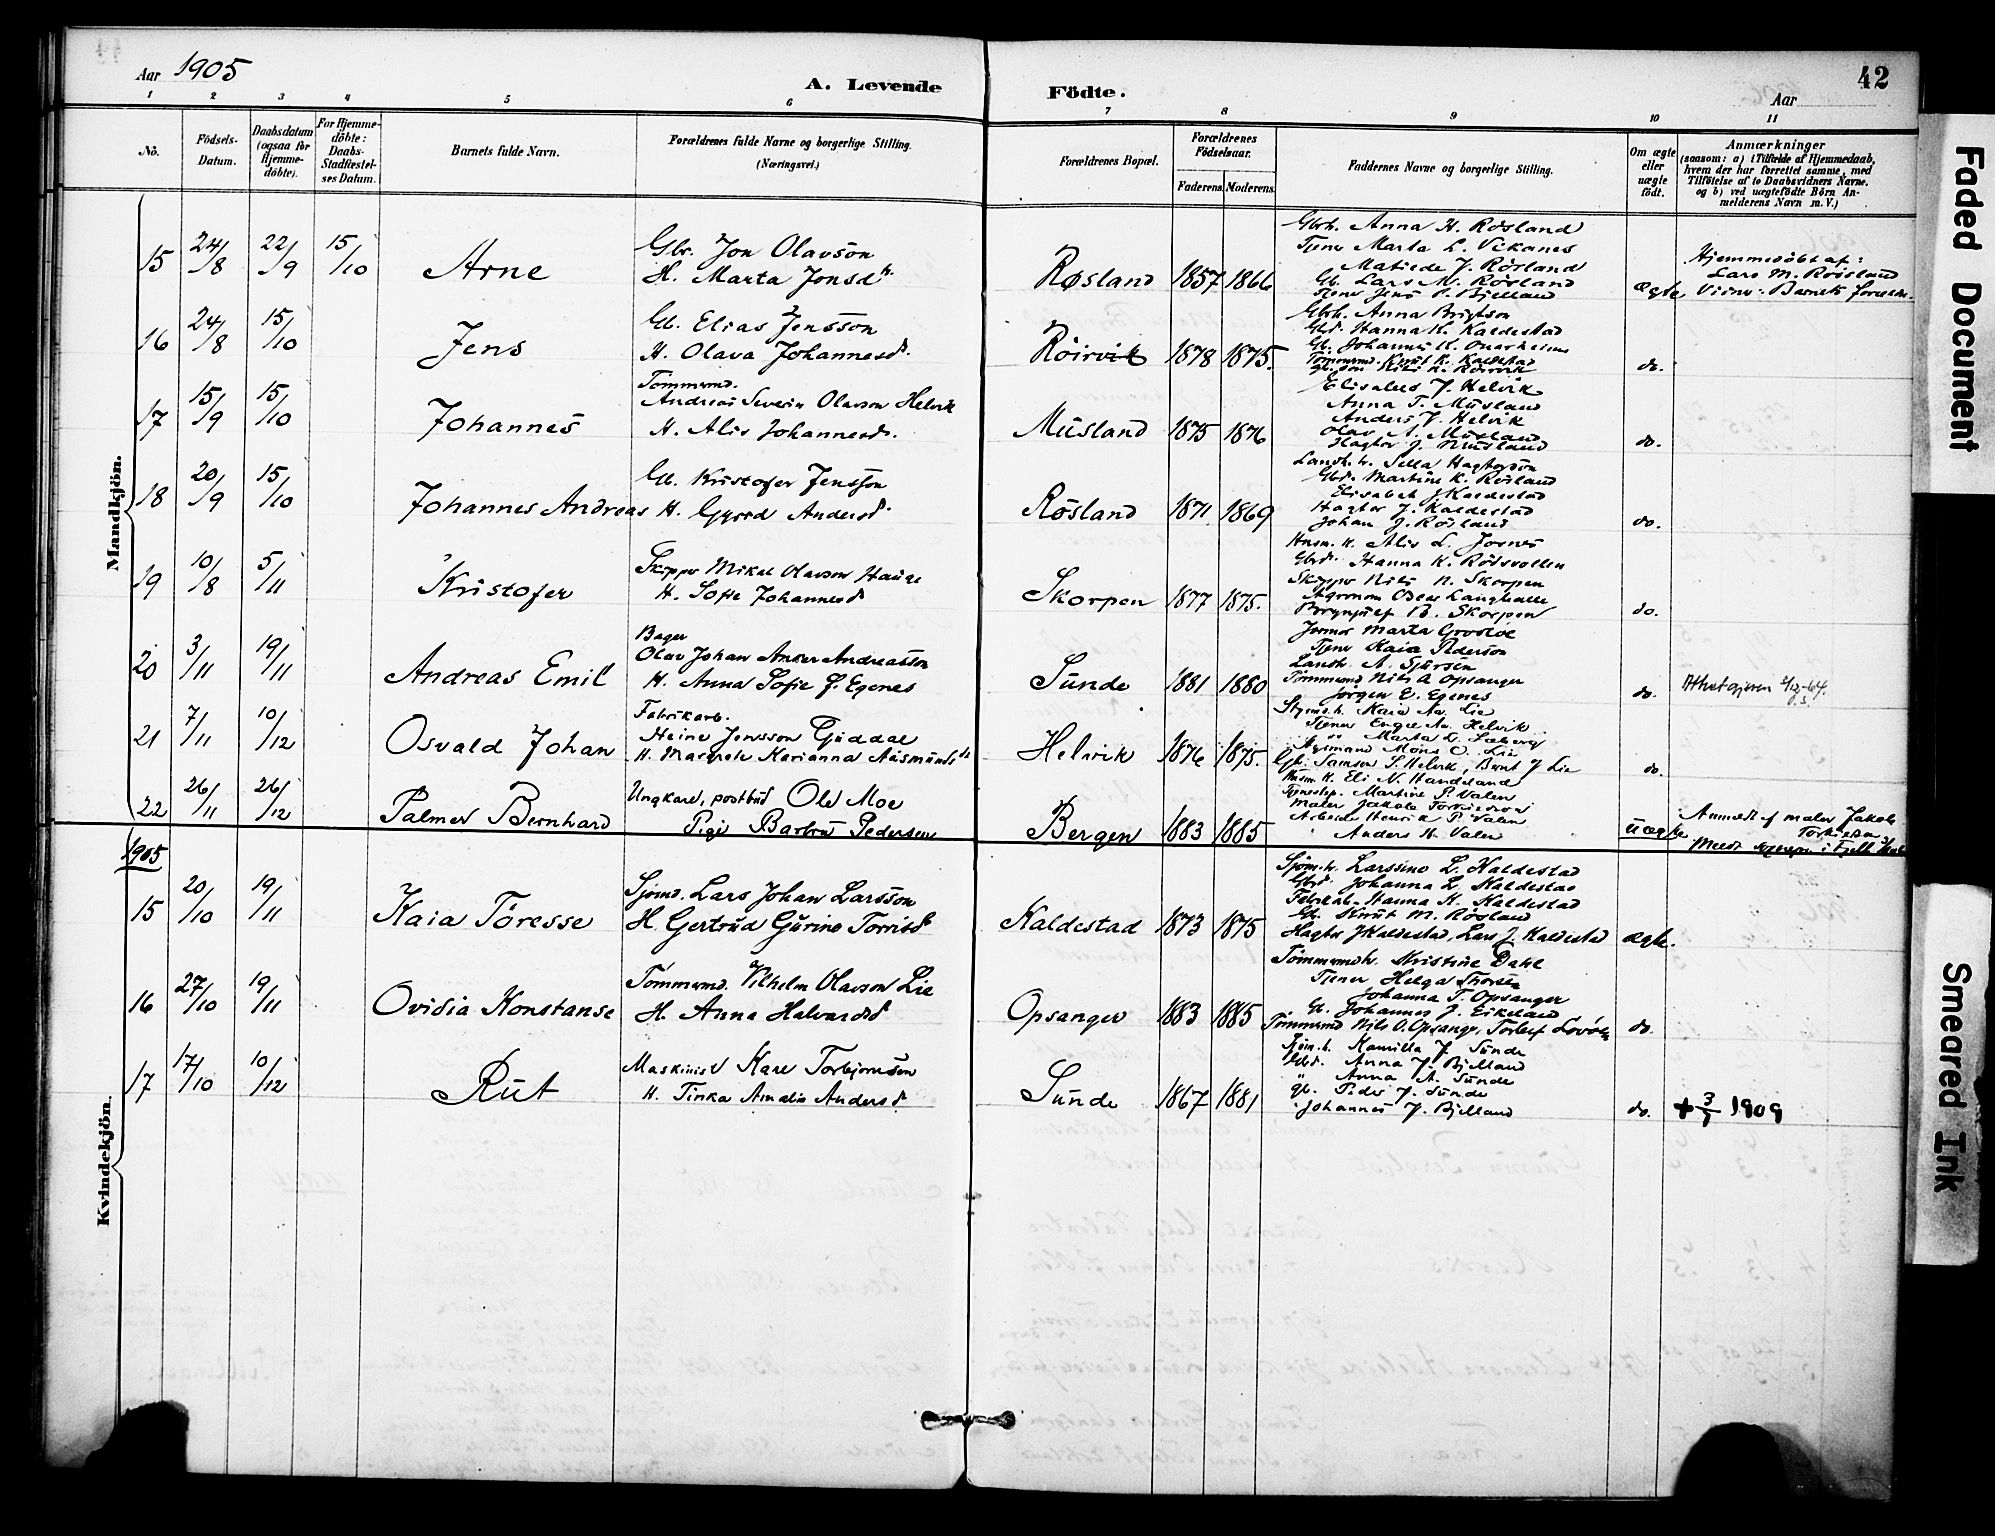 Aar 1905
A. Levende Födte.
Aar 42
1 2 3 4 5 6 7 8 9 10 11
Nô.
Födsels-
Datum.
Daabsdatum
(ogsaa for
Hjemme-
döbte).
For Hjemme-
döbte:
Daabs-
Stadfæstel-
ses Datum.
Barnets fulde Navn.
Forældrenes fulde Navne og borgerlige Stilling.
(Næringsvei.)
Forældrenes Bopæl.
Forældrenes
Födselsaar.
Faderens. Moderens.
Faddernes Navne og borgerlige Stilling.
Om ægte
eller
uægte
födt.
Anmærkninger
(saasom: a) i Tilfælde af Hjemmedaab,
hvem der har forrettet samme, med
Tilföielse af to Daabsvidners Navne,
og b) ved uægtefödte Börn An-
melderens Navn m. V.)
Mandkjön.
15 24/8 22/9 15/10 Arne
Gbr. Jon Olavson
H. Marta Jonsdtr.
Røsland 1857 1866
Gbrh. Anna H. Røsland
Tjener Marta L. Vikanes
Matilde J. Røsland
Gb. Lars M. Røsland
Tjener Jens P. Bjelland
ægte
Hjemmedöbt af:
Lars M. Røisland
Vidner: Barnets forældre.
16 24/8 15/10 Jens
Gb. Elias Jensson
H. Olava Johannesd.
Röirvik 1878 1875.
Gbrh. Anna Brigtson
Gbd. Hanna K. Kaldestad
Gb. Johannes K. Onarheim
Tömmermd. Knut K. Kaldestad
do.
17 15/9 15/10 Johannes
Tömmermd.
Andreas Severin Olavson Helvik
H. Alis Johannesd.
Musland 1875 1876
Elisabes J. Helvik
Anna T. Musland
Anders J. Helvik
Olav A. Musland
Hagtor J. Musland
do.
18 20/9 15/10 Johannes Andreas
Gb. Kristofer Jensson
H. Gyord Andersd.
Røsland 1871. 1869
Landh. h. Sella Hagtorson
Gbd. Martine K. Røsland
Elisabet J Kaldestad
Hagtor J. Kaldestad
Johan J. Røsland
do.
19 10/8 5/11 Kristofer
Skipper Mikal Olavson Hauge
H. Sofie Johannesd
Skorpen 1877 1875.
Husm. k. Alis L. Jornes
Gbrd. Hanna K. Rödsvollen
Skipper Nils N. Skorpen
Agronom Oscar Langballe
Brynjulf B. Skorpen
do.
20 3/11 19/11 Andreas Emil
Bager
Olav Johan Anker Andreasson
H. Anna Sofie J. Egenes
Sunde 1881 1880
Jormor Marta
Tjener Kaia Pederson
Landh. A. Sjursen
Tömmermd Nils A Opsanger
Jørgen E. Egenes
do.
21 7/11 10/12 Osvald Johan
Fabrikarb.
Heine Jensson Guddal
H. Margrete Karianna Aasmundsdtr
Helvik 1876 1875.
Styrmd. h. Kaia Aa. Lie
Tjener Engel Aa. Helvik
Marta D.
Styrmand Mons O. Lie
Gb. Samson S. Helvik, Bernt J Lie
do.
22 26/11 26/12 Palmer Bernhard
Ungkarl, postbud Ole Moe
Pige Barbra Pedersen
Bergen 1883 1885
Husm. k. Eli N. Handeland
Tjenestep. Martine P. Valen
Maler Jakob Torkildson
Arbeider Henrik P. Valen
Anders H. Valen
uægte
Anmeldt af maler Jakob
Torkildsen
Kvindekjön.
1905
15 20/10 19/11 Kaia Töresse
Sjömd. Lars Johan Larsson
H Gertrud Gurine Torrisd
Kaldestad 1873 1875
Sjöm.h. Larssine L. Kaldestad
Gbd. Johanna L. Kaldestad
Fabrikarb. Hanna K. Kaldestad
Gb. Knut M. Røsland
Hagtor J Kaldestad, Lars J. Kaldestad
ægte.
16 27/10 19/11 Ovidia Konstanse
Tömmermd. Vilhelm Olavson Lie
H. Anna Halvardsd
Opsanger 1883 1885
Tömmermdh. Kristine Dahl
Tjener Helga Thorsen
Johanna T. Opsanger
Gb. Johannes J. Eikeland
Tömmermd Nils O. Opsanger, Torleif
do.
17 17/10 10/12 Rut
Maskinist Kare Torbjornson
H. Tinka Amalia Andersd.
Sunde 1867 1881
Sjöm.h. Kamilla J. Sunde
Gbd. Anna J. Bjelland
" Anna A. Sunde
gb. Peder J. Sunde
Johannes J. Bjelland
do.
+ 3/1 1909
Faded Document
Smeared Ink